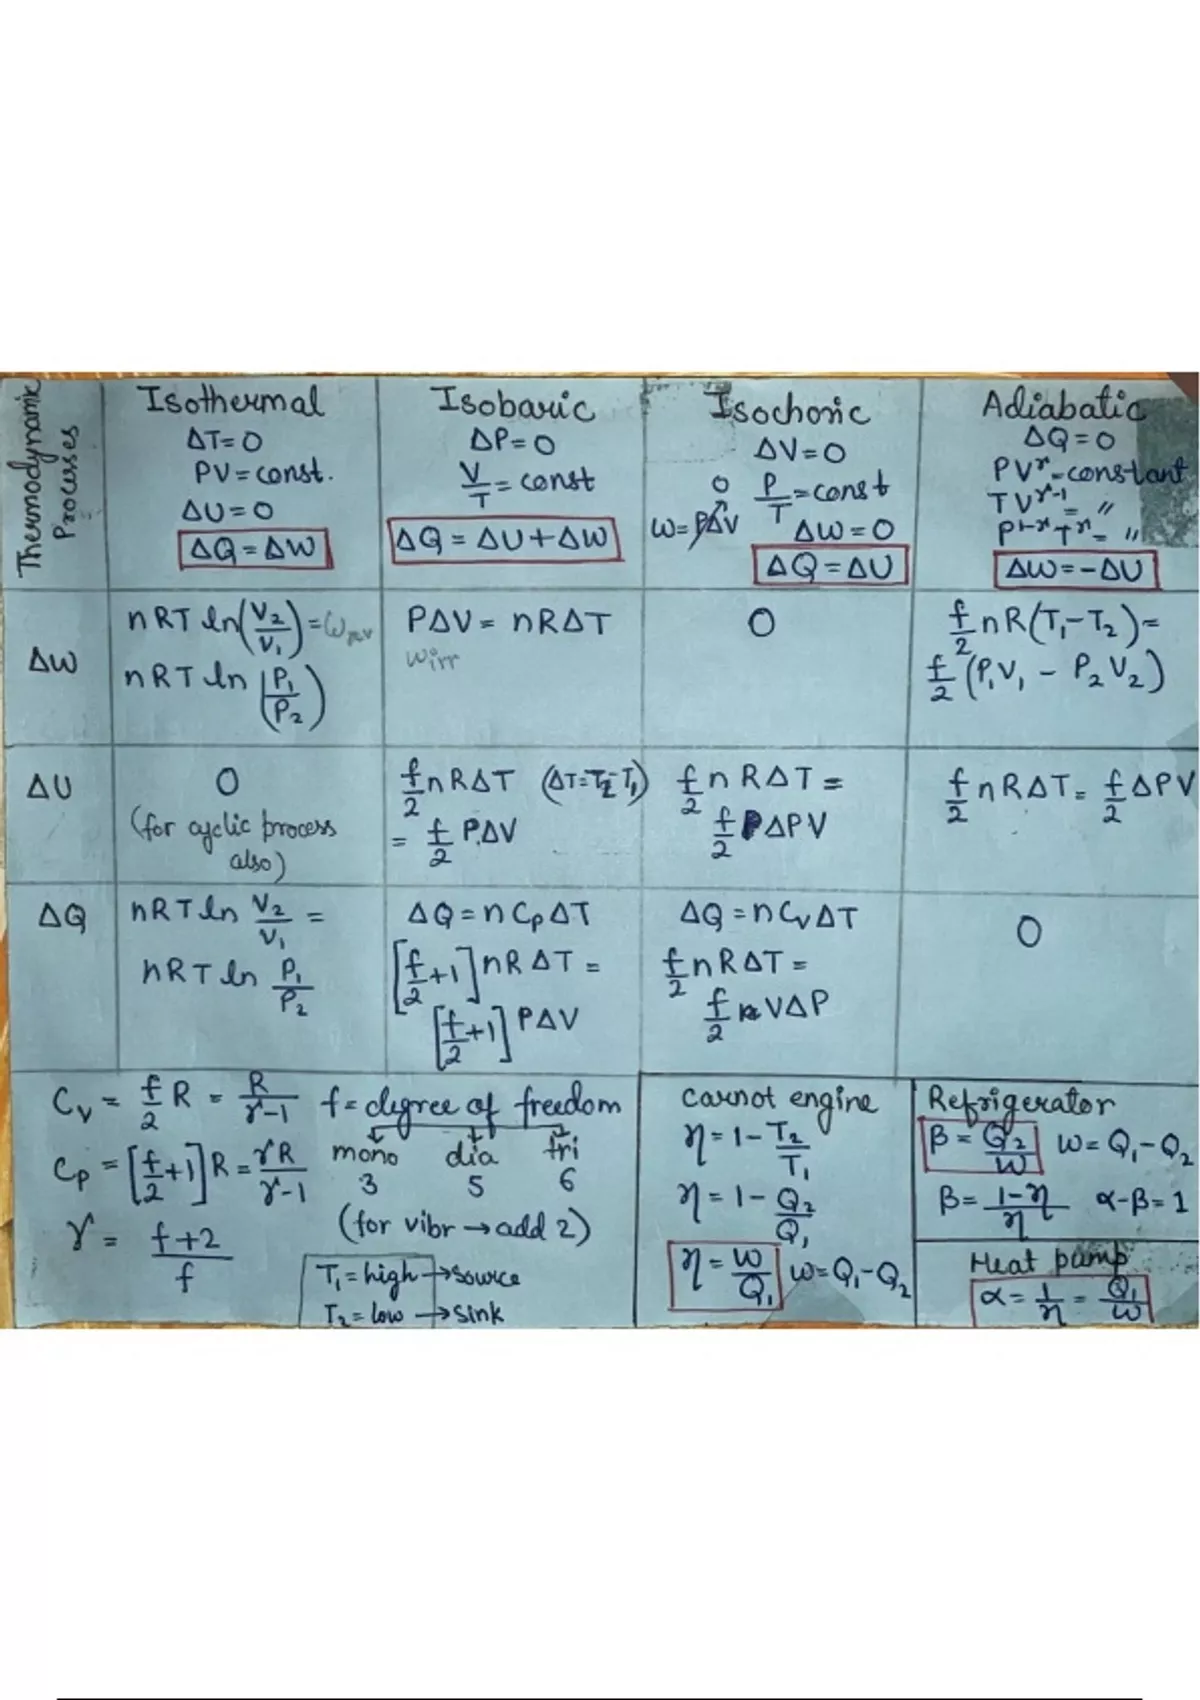 Thermodynamic
Processes
Isothermal
ΔT=0
PV=const.
ΔU=0
ΔQ=ΔW
Isobaric
ΔP=0
V/T=const
ΔQ=ΔU+ΔW
Isochoric
ΔV=0
P/T=const
0
W=PΔV
ΔW=0
ΔQ=ΔU
Adiabatic
ΔQ=0
PV^γ=constant
TV^γ-1= "
P^1-γ T^γ= "
ΔW=-ΔU
ΔW
nRT ln(V₂/V₁)=Wrev
nRT ln(P₁/P₂)
PΔV= nRΔT
Wirr
0
f/2 nR(T₁-T₂)=
f/2 (P₁V₁ - P₂V₂)
ΔU
0
(for cyclic process
also)
f/2 nRΔT (ΔT=T₂-T₁)
= f/2 PΔV
f/2 nRΔT=
f/2 ΔPV
f/2 nRΔT= f/2 ΔPV
ΔQ
nRT ln V₂/V₁ =
nRT ln P₁/P₂
ΔQ=nCpΔT
[f/2+1]nRΔT=
[f/2+1]PΔV
ΔQ=nCvΔT
f/2 nRΔT=
f/2 VΔP
0
Cv = f/2 R = R/γ-1
Cp = [f/2+1]R = γR/γ-1
γ = f+2/f
f=degree of freedom
mono dia tri
3 5 6
(for vibr → add 2)
T₁=high→source
T₂=low→sink
carnot engine
η=1-T₂/T₁
η=1-Q₂/Q₁
η=W/Q₁ W=Q₁-Q₂
Refrigerator
β=Q₂/W W=Q₁-Q₂
β=1-η/η α-β=1
Heat pump
α=1/η=Q₁/W